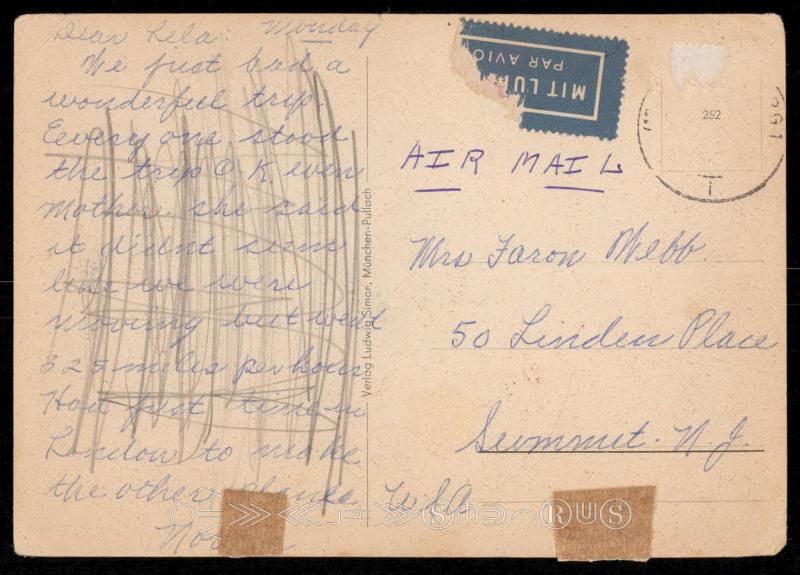 Dear Lela. Monday
We just had a
wonderful trip.
Eevery one stood
the trip O.K. even
Mother. she said
it didnt seem
like we were
moving but went
325 miles per hour
Had just time in
London to make
the other planes
Verlag Ludwig Simon, München-Pullach
MIT LUF
PAR AVIO
252
AIR MAIL
Mrs Faron Webb
50 Linden Place
Summit. N.J.
USA